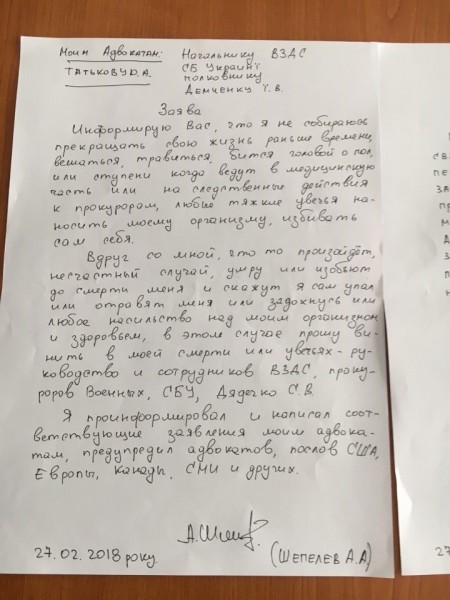 Моим Адвокатам:
Татькову Д.А.
Начальнику ВЗДС
СБ України
полковнику
Демченку Ї.В.
Заява
Информирую Вас, что я не собираюсь
прекращать свою жизнь раньше времени,
вешаться, травиться, бится головой о пол,
или ступени когда ведут в медицинскую
часть или на следственные действия
к прокурорам, любые тяжкие увечья на-
носить моему организму, избивать
сам себя.
Вдруг со мной, что то произайдёт,
несчастный случай, умру или изобьют
до смерти меня и скажут я сам упал
или отравят меня или задохнусь или
любое насильство над моим организмом
и здоровьем, в этом случае прошу ви-
нить в моей смерти или увечьях - ру-
ководство и сотрудников ВЗДС, проку-
роров Военных, СБУ, Дядечко С.В.
Я проинформировал и написал соот-
ветствующие заявления моим адвока-
там, предупредил адвокатов, послов США,
Европы, Канады, СМИ и других.
27.02.2018 року.
(Шепелев А.А)
27